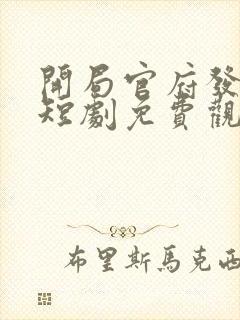 開局官府發
短劇免費觀
布里斯馬克西